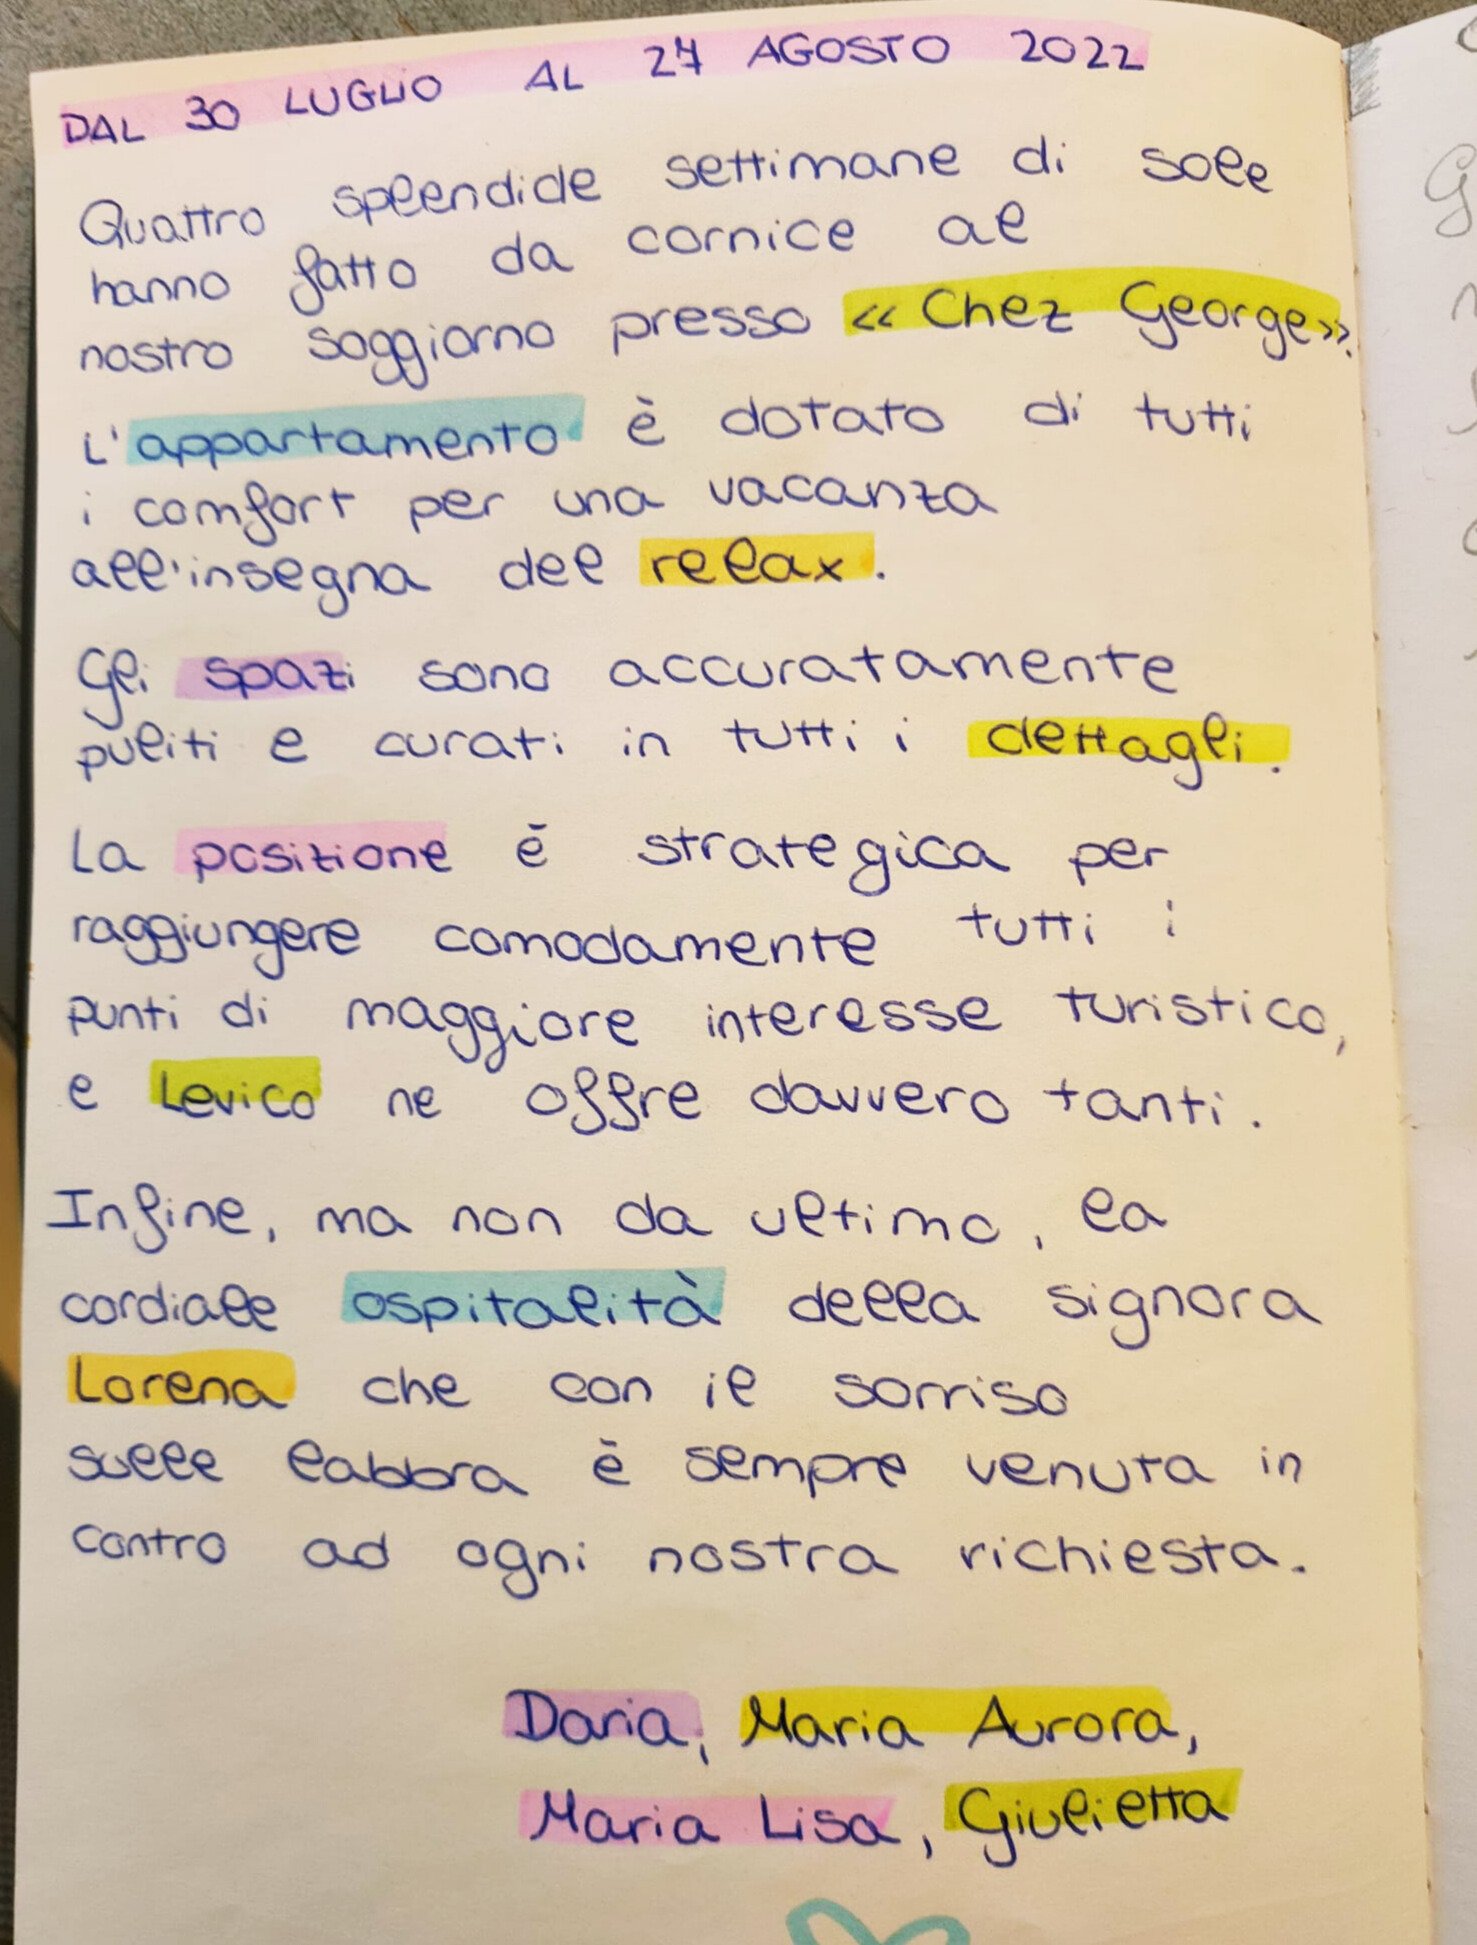 DAL 30 LUGLIO AL 27 AGOSTO 2022
Quattro splendide settimane di sole
hanno fatto da cornice al
nostro soggiorno presso « Chez George».
L'appartamento è dotato di tutti
i comfort per una vacanza
all'insegna del relax.
Gli spazi sono accuratamente
puliti e curati in tutti i dettagli.
La posizione è strategica per
raggiungere comodamente tutti i
punti di maggiore interesse turistico,
e Levico ne offre davvero tanti.
Infine, ma non da ultimo, la
cordiale ospitalità della signora
Lorena che con il sorriso
sulle labbra è sempre venuta in
contro ad ogni nostra richiesta.
Daria, Maria Aurora,
Maria Lisa, Giulietta